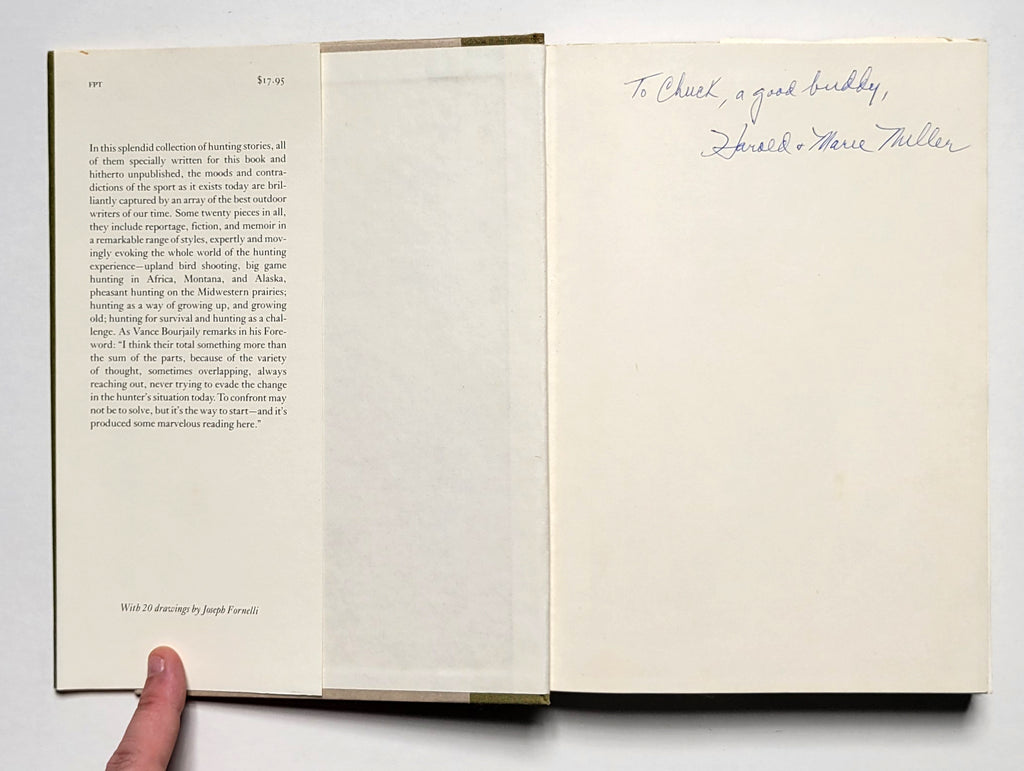 FPT
$17.95
In this splendid collection of hunting stories, all
of them specially written for this book and
hitherto unpublished, the moods and contra-
dictions of the sport as it exists today are bril-
liantly captured by an array of the best outdoor
writers of our time. Some twenty pieces in all,
they include reportage, fiction, and memoir in
a remarkable range of styles, expertly and mov-
ingly evoking the whole world of the hunting
experience—upland bird shooting, big game
hunting in Africa, Montana, and Alaska,
pheasant hunting on the Midwestern prairies;
hunting as a way of growing up, and growing
old; hunting for survival and hunting as a chal-
lenge. As Vance Bourjaily remarks in his Fore-
word: “I think their total something more than
the sum of the parts, because of the variety
of thought, sometimes overlapping, always
reaching out, never trying to evade the change
in the hunter's situation today. To confront may
not be to solve, but it's the way to start—and it's
produced some marvelous reading here.”
With 20 drawings by Joseph Fornelli
To Chuck, a good buddy,
Harold + Marie Miller